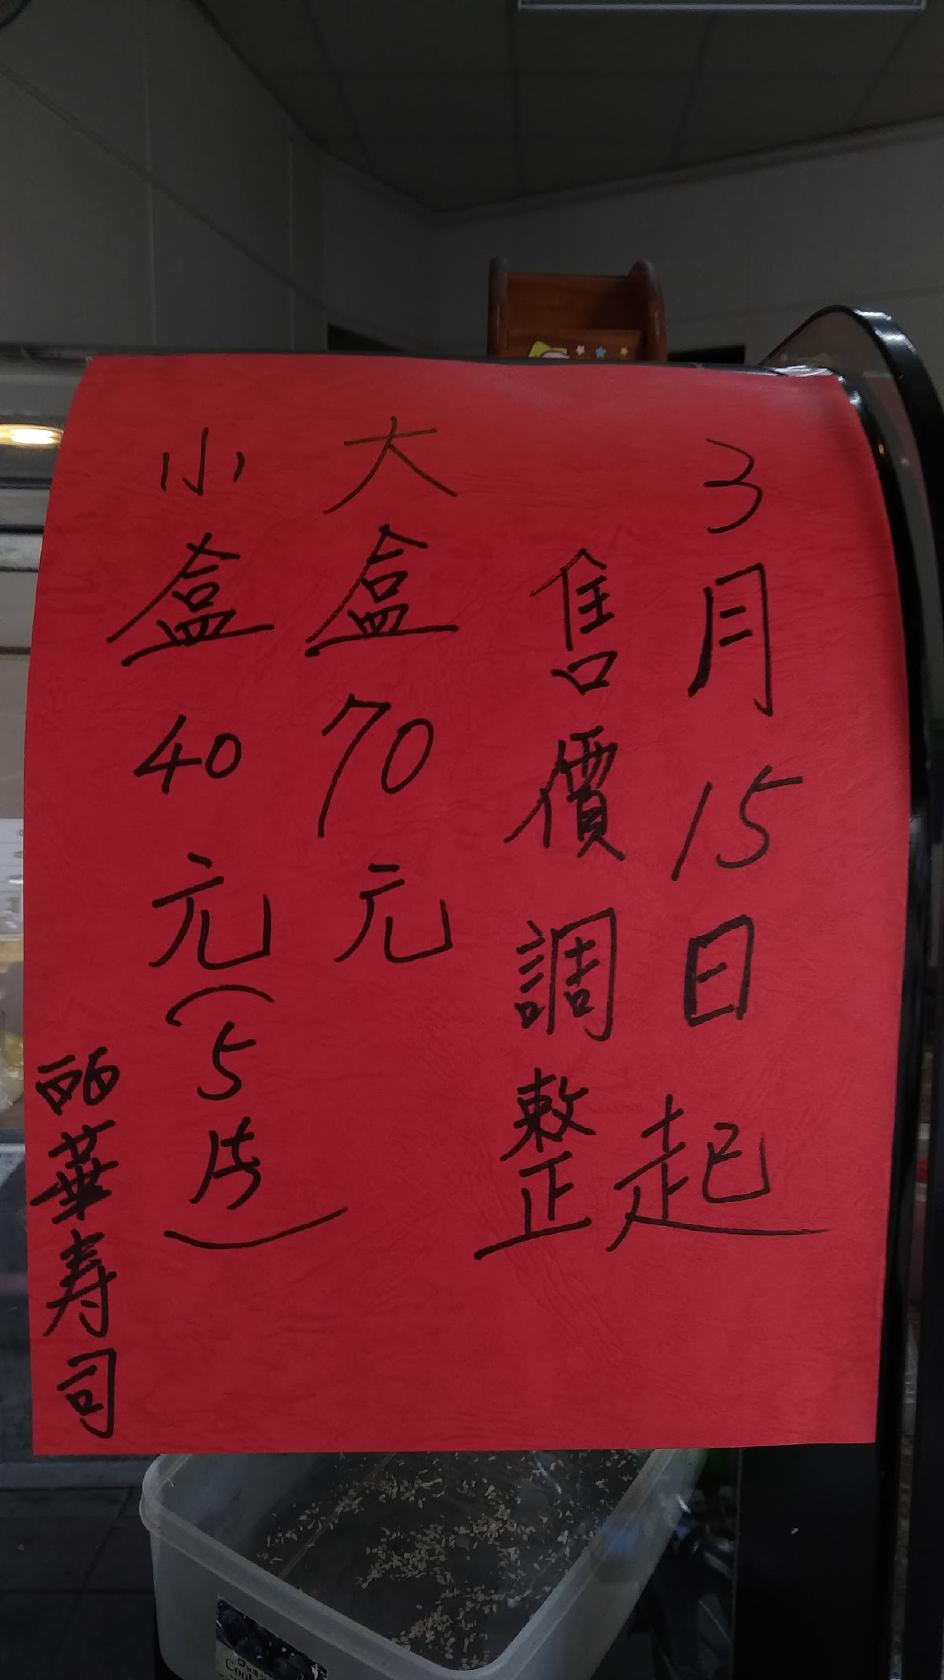 3月15日起
售價調整
大盒70元
小盒40元(5片)
華寿司